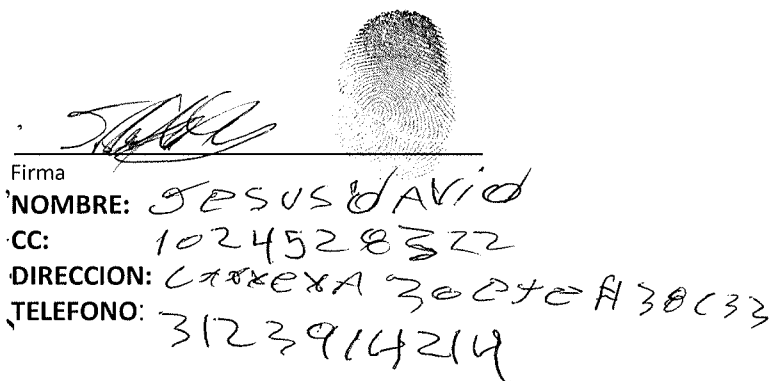 Firma
NOMBRE: JESUS dAVid
CC: 1024528322
DIRECCION: CARRERA 30
TELEFONO: 3123914214